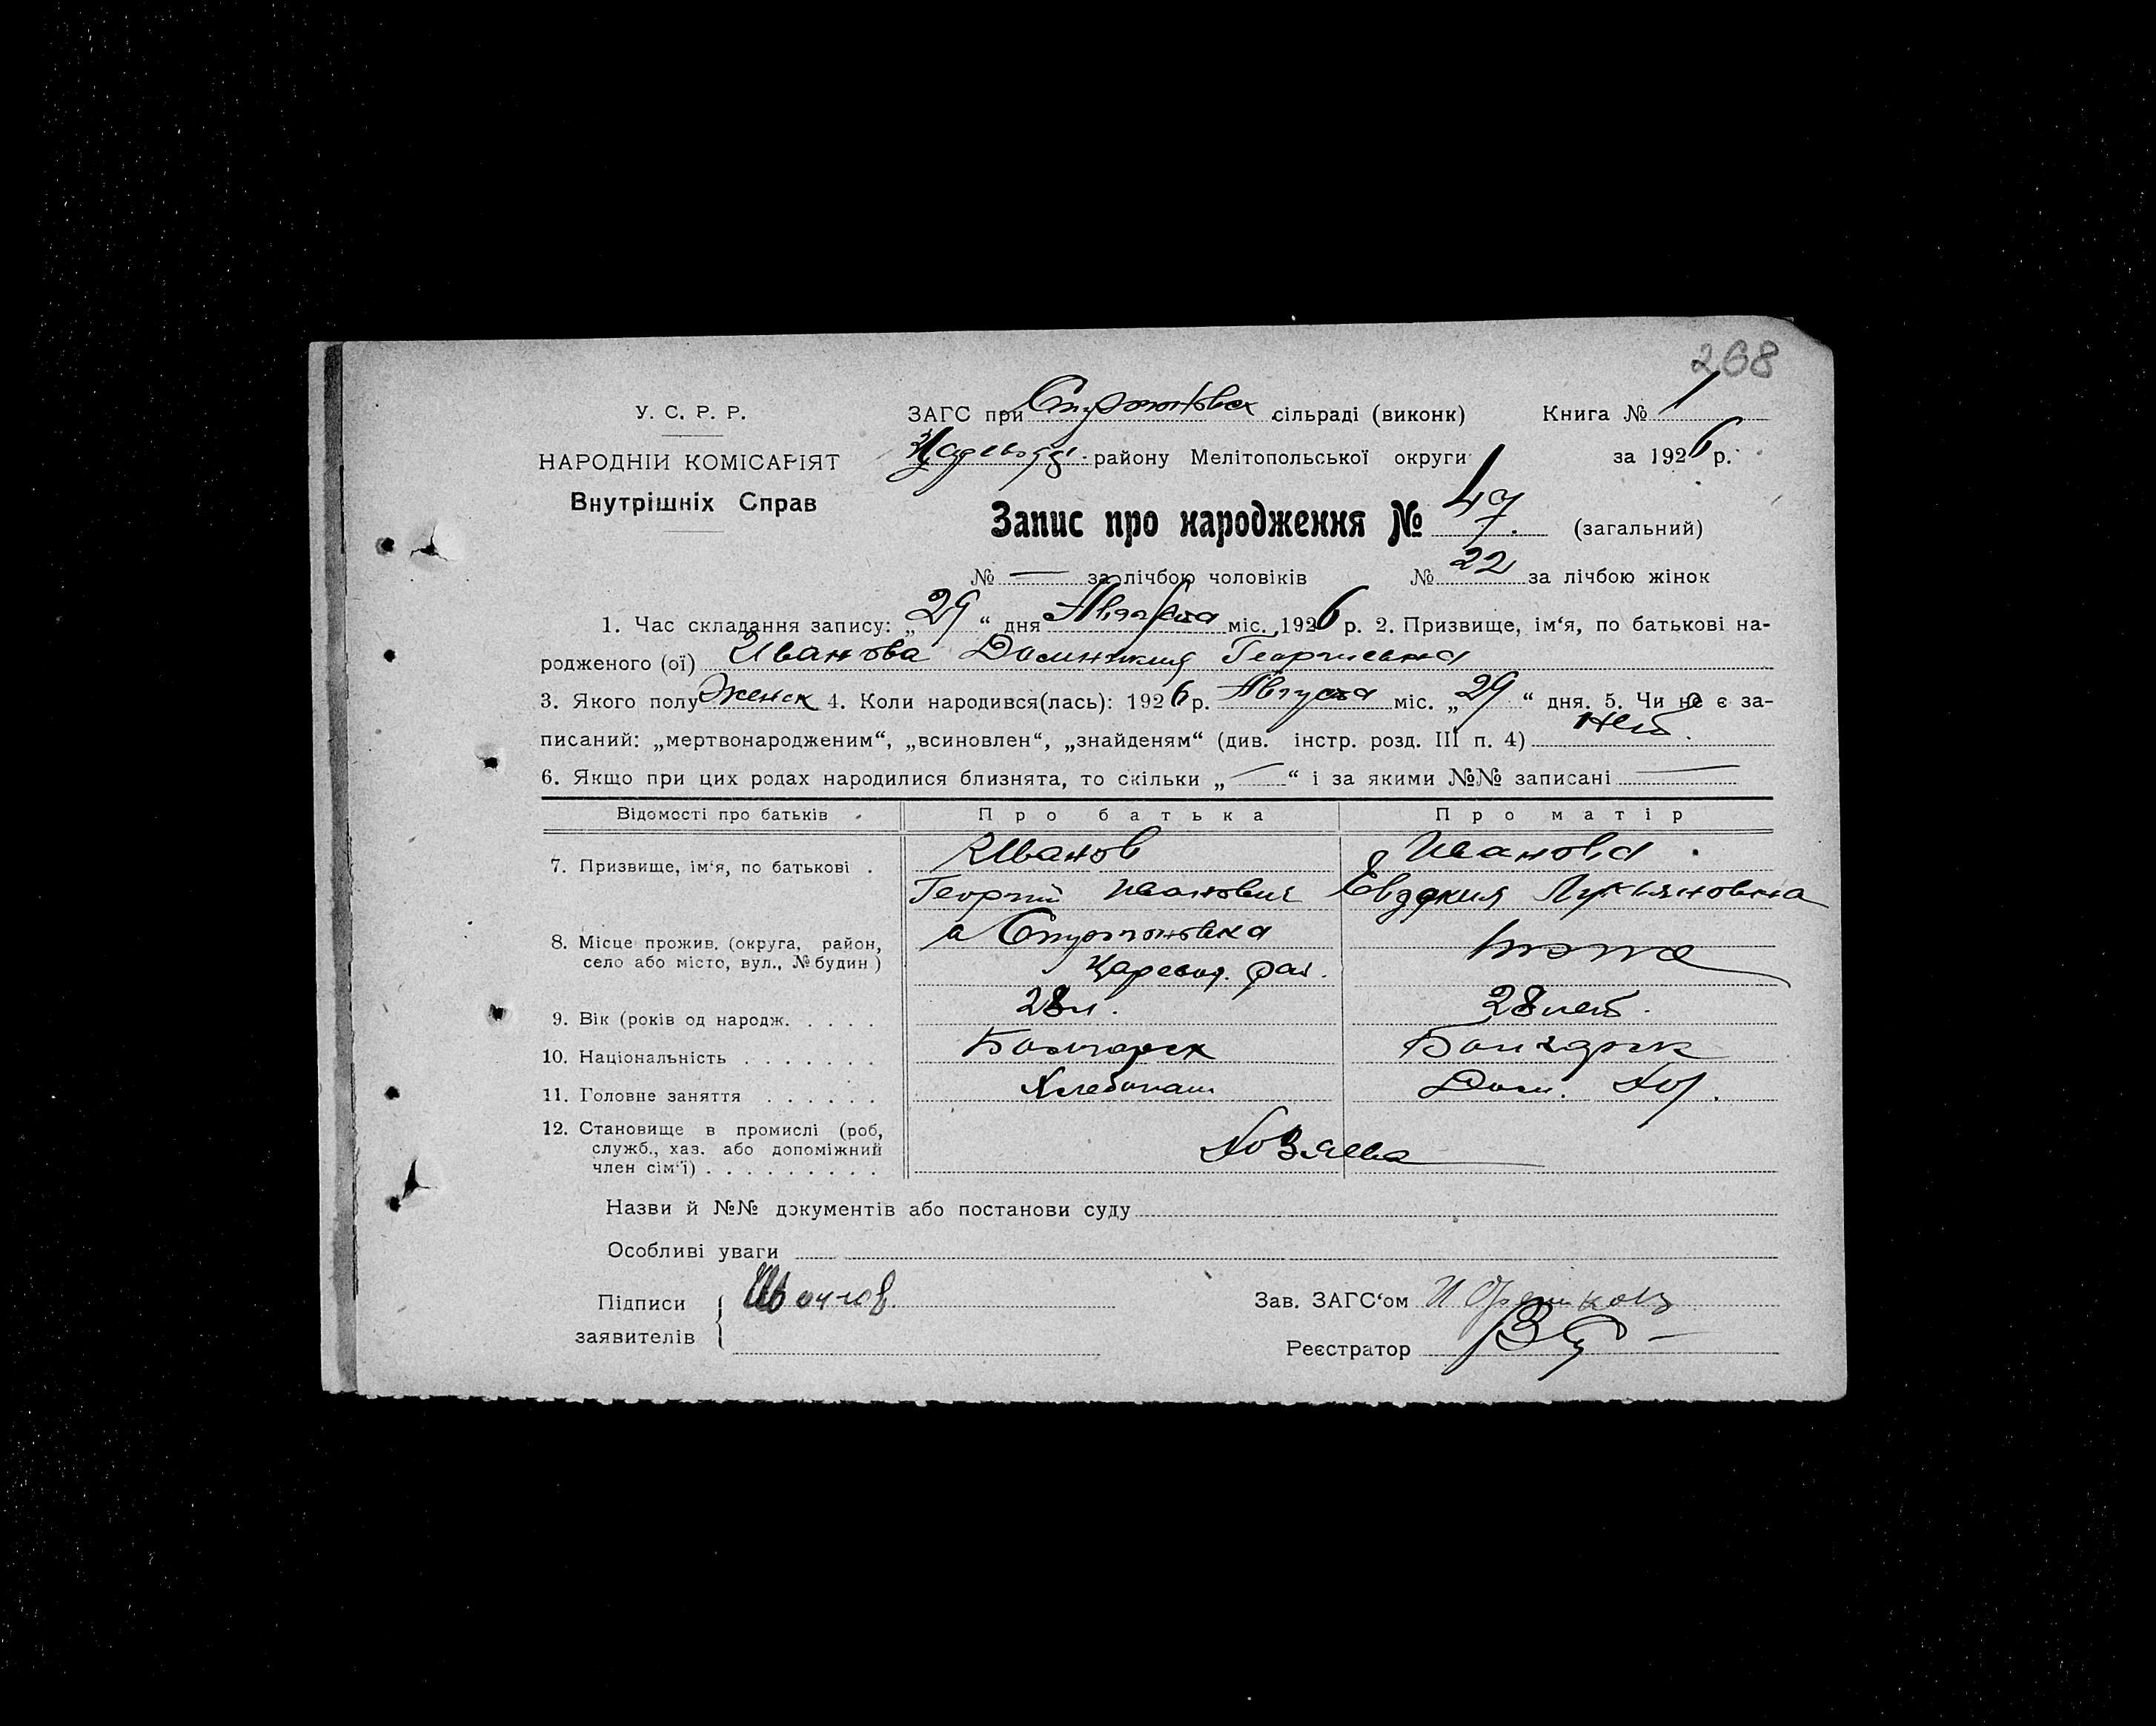 268
У. С. Р. Р.
НАРОДНІЙ КОМІСАРІЯТ
Внутрішніх Справ
ЗАГС при сільраді (виконк) Книга № 1
району Мелітопольської округи за 1926 р.
Запис про народження № 47. (загальний)
№ — за лічбою чоловіків № 22 за лічбою жінок
1. Час складання запису: „29“ дня Августа міс. 1926 р. 2. Призвище, ім‘я, по батькові на-
родженого (ої) Иванова Георгиевна
3. Якого полу Женск 4. Коли народився(лась): 1926 р. Августа міс. „29“ дня. 5. Чи не є за-
писаний: „мертвонародженим“, „всиновлен“, „знайденям“ (див. інстр. розд. III п. 4) Нет.
6. Якщо при цих родах народилися близнята, то скільки „—“ і за якими №№ записані —
Відомості про батьків Про батька Про матір
7. Призвище, ім‘я, по батькові . Иванов Иванова
Георгий Иванович Евдокия Лукьяновна
8. Місце прожив. (округа, район,
село або місто, вул., № будин) Царевод. рай. тоже
9. Вік (років од народж. . . . . 28 л. 28 лет.
10. Національність . . . . . . . Болгарск Болгарск
11. Головне заняття . . . . . . Хлебопаш Дом. Хоз.
12. Становище в промислі (роб,
служб., хаз. або допоміжний
член сім‘ї) . . . . . . . . . Хозяева
Назви й №№ документів або постанови суду
Особливі уваги
Підписи заявителів Иванов.
Зав. ЗАГС‘ом
Реєстратор